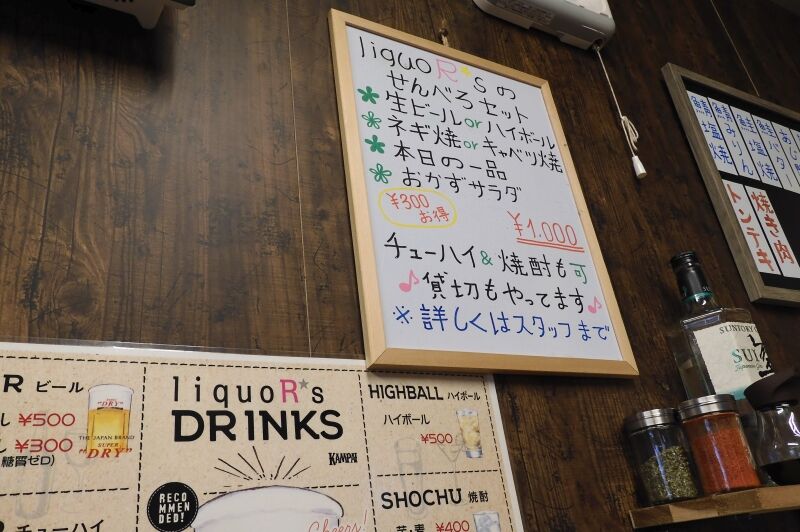 liquoR★sの
せんべろセット
生ビールorハイボール
ネギ焼orキャベツ焼
本日の一品
おかずサラダ
¥300
お得
¥1.000
チューハイ&焼酎も可
♪貸切もやってます♪
※詳しくはスタッフまで
鯖塩焼
鯖みりん
鮭塩焼
鮭バタ
トンテキ
焼き肉
R ビール
¥500
¥300
糖質ゼロ)
"DRY"
THE JAPAN BRAND
SUPER
"DRY"
liquoR★s
DRINKS
KAMPAI
RECO
MMEN
DED!
Cheers!
HIGHBALL ハイボール
ハイボール
¥500
SHOCHU 焼酎
芋・麦 ¥400
チューハイ
SUNTORY